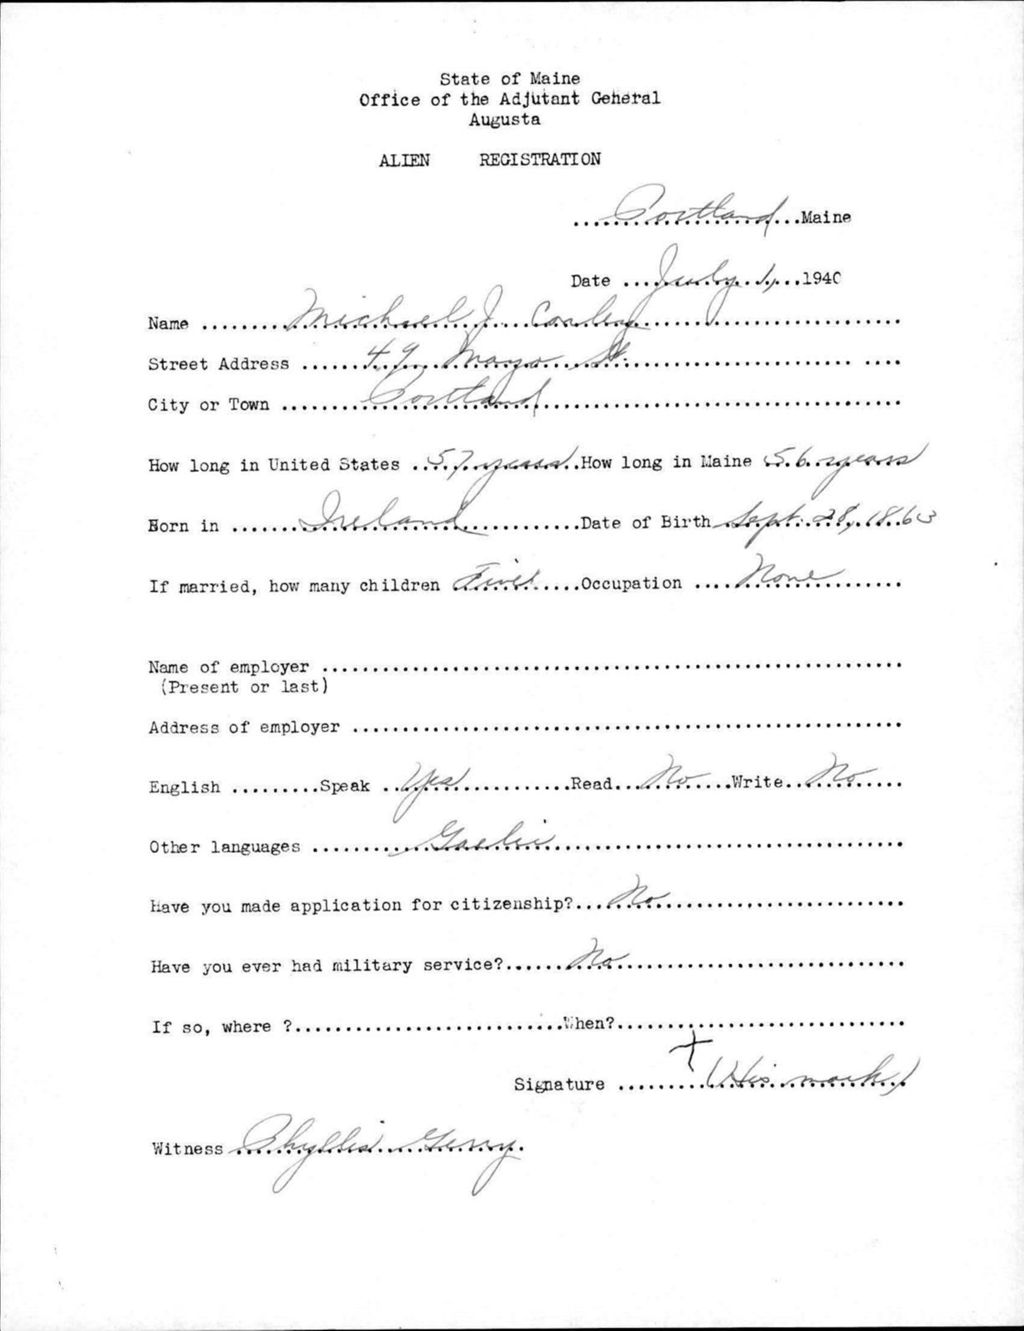 State of Maine
Office of the Adjutant General
Augusta
ALIEN REGISTRATION
Portland Maine
Date July 1, 1940
Name Michael J. Conley
Street Address 49 Mayo St.
City or Town Portland
How long in United States 57 years How long in Maine 56 years
Born in Ireland Date of Birth Sept. 28, 1863
If married, how many children Five Occupation None
Name of employer
(Present or last)
Address of employer
English Speak Yes Read No Write No
Other languages Gaelic
Have you made application for citizenship? No
Have you ever had military service? No
If so, where ? When?
Signature X (His mark)
Witness Phyllis Gerry